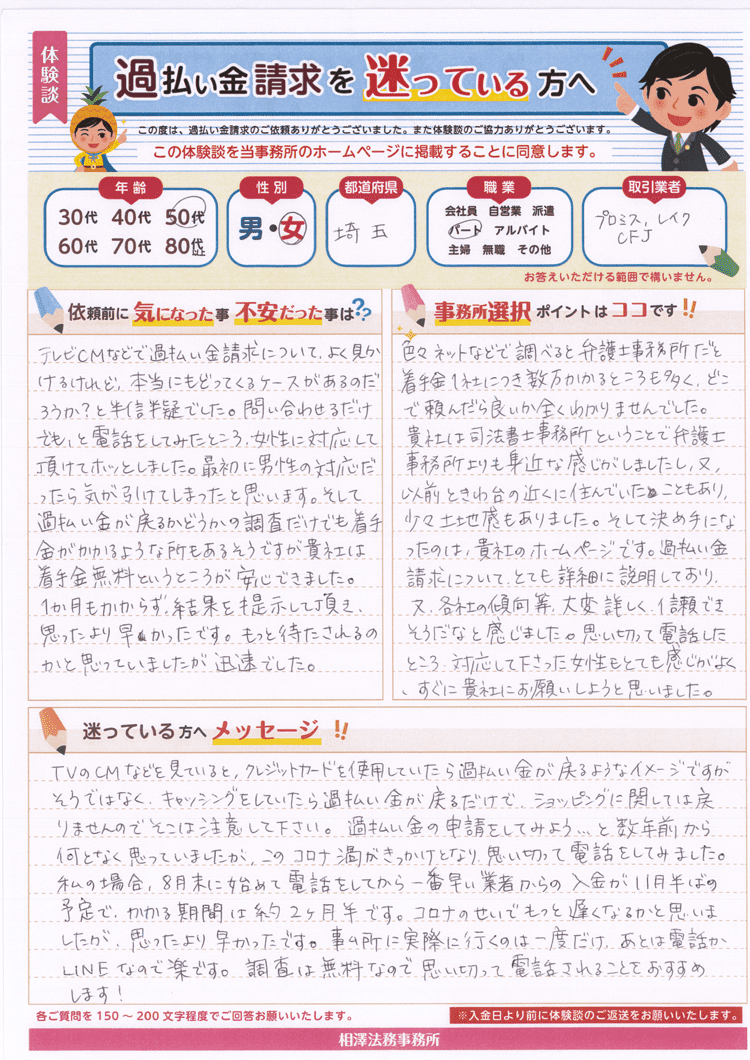 体験談
過払い金請求を迷っている方へ
この度は、過払い金請求のご依頼ありがとうございました。また体験談のご協力ありがとうございます。
この体験談を当事務所のホームページに掲載することに同意します。
年齢
30代 40代 50代
60代 70代 80代以上
性別
男・女
都道府県
埼玉
職業
会社員 自営業 派遣
パート アルバイト
主婦 無職 その他
取引業者
プロミス、レイク
CFJ
お答えいただける範囲で構いません。
依頼前に気になった事 不安だった事は??
テレビCMなどで過払い金請求について、よく見か
けるけれど、本当にもどってくるケースがあるのだ
ろうか?と半信半疑でした。問い合わせるだけ
でも、と電話をしてみたところ、女性に対応して
頂けてホッとしました。最初に男性の対応だ
ったら気が引けてしまったと思います。そして
過払い金が戻るかどうかの調査だけでも着手
金がかかるような所もあるそうですが貴社は
着手金無料というところが安心できました。
1か月もかからず、結果を提示して頂き、
思ったより早かったです。もっと待たされるの
かと思っていましたが迅速でした。
事務所選択ポイントはココです!!
色々ネットなどで調べると弁護士事務所だと
着手金1社につき数万かかるところも多く、どこ
で頼んだら良いか全くわかりませんでした。
貴社は司法書士事務所ということで弁護士
事務所よりも身近な感じがしましたし、又、
以前ときわ台の近くに住んでいたこともあり、
少々土地感もありました。そして決め手にな
ったのは、貴社のホームページです。過払い金
請求について、とても詳細に説明しており、
又、各社の傾向等、大変詳しく、信頼でき
そうだなと感じました。思い切って電話した
ところ、対応して下さった女性もとても感じがよく
、すぐに貴社にお願いしようと思いました。
迷っている方へメッセージ!!
TVのCMなどを見ていると、クレジットカードを使用していたら過払い金が戻るようなイメージですが
そうではなく、キャッシングをしていたら過払い金が戻るだけで、ショッピングに関しては戻
りませんのでそこは注意して下さい。過払い金の申請をしてみよう...と数年前から
何となく思っていましたが、このコロナ渦がきっかけとなり、思い切って電話をしてみました。
私の場合、8月末に始めて電話をしてから一番早い業者からの入金が11月半ばの
予定で、かかる期間は約2ヶ月半です。コロナのせいでもっと遅くなるかと思いま
したが、思ったより早かったです。事ム所に実際に行くのは一度だけ、あとは電話か
LINEなので楽です。調査は無料なので思い切って電話されることをおすすめ
します!
各ご質問を150～200文字程度でご回答お願いいたします。
※入金日より前に体験談のご返送をお願いいたします。
相澤法務事務所